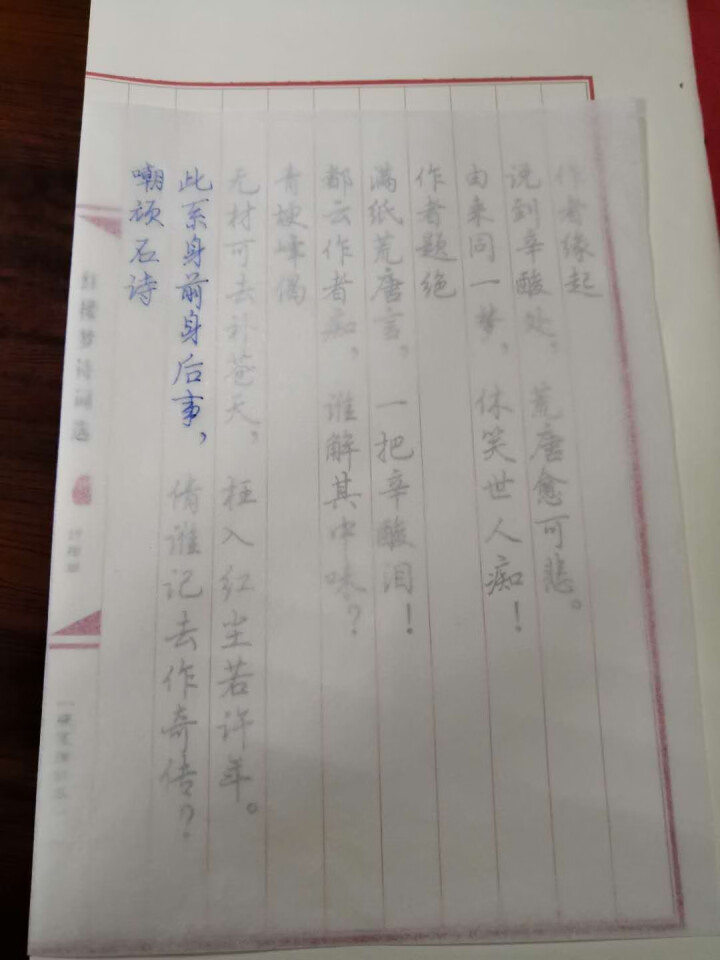 作者缘起
说到辛酸处，荒唐愈可悲。
由来同一梦，休笑世人痴！
作者题绝
满纸荒唐言，一把辛酸泪！
都云作者痴，谁解其中味？
青埂峰偈
无材可去补苍天，枉入红尘若许年。
此系身前身后事，倩谁记去作奇传？
嘲顽石诗
红楼梦诗词选